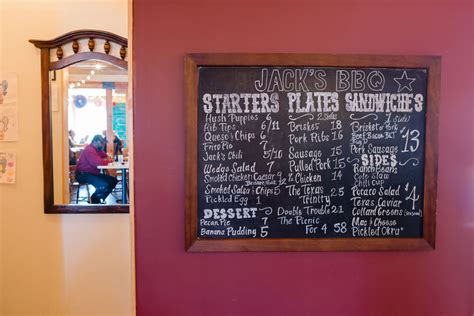 JACK'S BBQ
STARTERS
Hush Puppies 6
Rib Tips 6/11
Queso & Chips
Frito Pie
Jack's Chili
Wedge Salad 7
Smoked Chicken Caesar 9
Smoked Salsa & Chips
Pickled Egg 1
DESSERT
Pecan Pie
Banana Pudding 5
PLATES
2 Sides
Brisket 18
Pork Ribs
Sausage 15
Pulled Pork
1/4 Chicken 14
The Texas
Trinity
Double Trouble 21
The Picnic
For 4 58
SANDWICHES
1 Side
Brisket
Pork
Sausage
13
SIDES
Ranch Beans
Cole Slaw
Chili Cup
Potato Salad
Texas Caviar
Collard Greens
Mac & Cheese
Pickled Okra
4